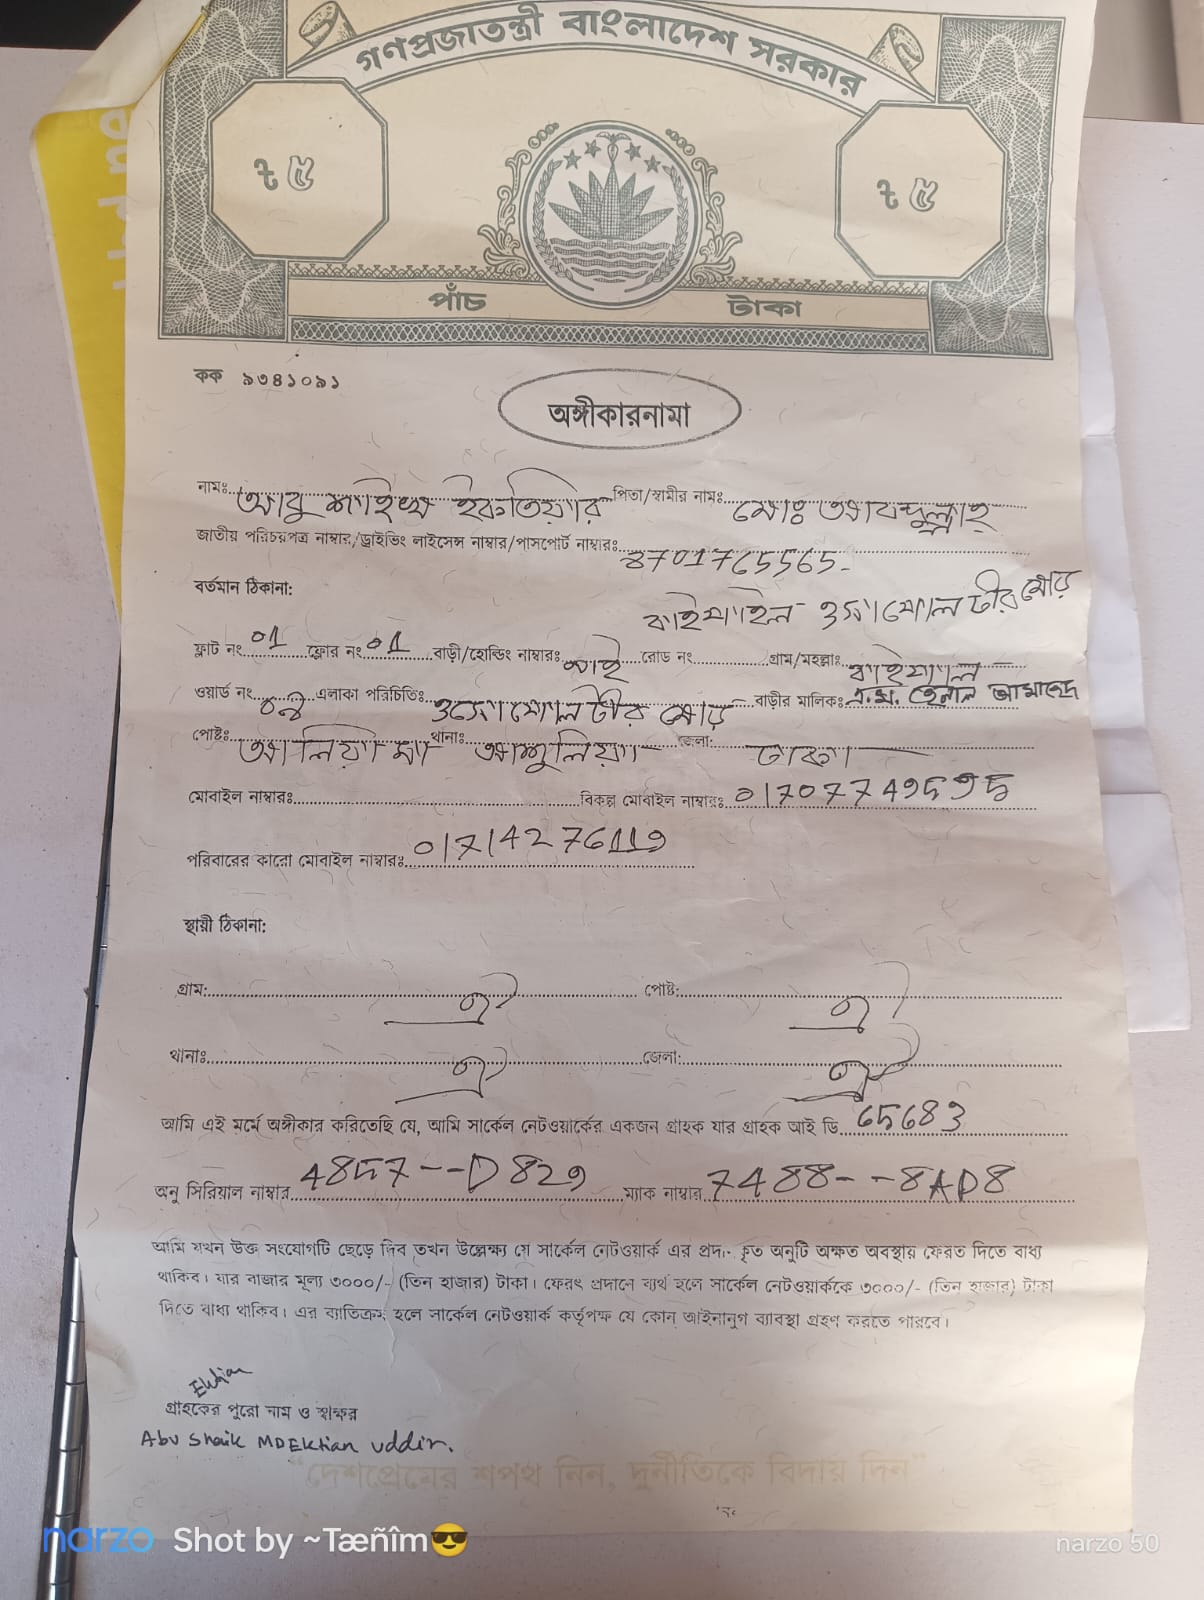 গণপ্রজাতন্ত্রী বাংলাদেশ সরকার
৳ ৫ ৳ ৫
পাঁচ টাকা
কক ৯৩৪১০৯১
অঙ্গীকারনামা
নামঃ আবু শাইখ ইকতিয়ার পিতা/স্বামীর নামঃ মোঃ আবদুল্লাহ
জাতীয় পরিচয়পত্র নাম্বার/ড্রাইভিং লাইসেন্স নাম্বার/পাসপোর্ট নাম্বারঃ 8701765565
বর্তমান ঠিকানা:
বাইপাইল
ফ্লাট নং 01 ফ্লোর নং 01 বাড়ী/হোল্ডিং নাম্বারঃ নাই রোড নং গ্রাম/মহল্লাঃ
ওয়ার্ড নং এলাকা পরিচিতিঃ বাড়ীর মালিকঃ এ.ম. হেলাল আমাদের
পোষ্টঃ থানাঃ আশুলিয়া জেলা: ঢাকা
মোবাইল নাম্বারঃ বিকল্প মোবাইল নাম্বারঃ
পরিবারের কারো মোবাইল নাম্বারঃ 01714276119
স্থায়ী ঠিকানা:
গ্রাম: ঐ পোষ্ট: ঐ
থানাঃ ঐ জেলা: ঐ
আমি এই মর্মে অঙ্গীকার করিতেছি যে, আমি সার্কেল নেটওয়ার্কের একজন গ্রাহক যার গ্রাহক আই ডি 65683
অনু সিরিয়াল নাম্বার 4857--D829 ম্যাক নাম্বার 7488--8AD8
আমি যখন উক্ত সংযোগটি ছেড়ে দিব তখন উল্লেক্ষ্য যে সার্কেল নেটওয়ার্ক এর প্রদা- কৃত অনুটি অক্ষত অবস্থায় ফেরত দিতে বাধ্য
থাকিব। যার বাজার মূল্য ৩০০০/- (তিন হাজার) টাকা। ফেরৎ প্রদানে ব্যর্থ হলে সার্কেল নেটওয়ার্ককে ৩০০০/- (তিন হাজার) টাকা
দিতে বাধ্য থাকিব। এর ব্যতিক্রম হলে সার্কেল নেটওয়ার্ক কর্তৃপক্ষ যে কোন আইনানুগ ব্যাবস্থা গ্রহণ করতে পারবে।
Ektian
গ্রাহকের পুরো নাম ও স্বাক্ষর
Abu Shaik MD Ektian Uddin.
“দেশপ্রেমের শপথ নিন, দুর্নীতিকে বিদায় দিন”
narzo Shot by ~Tæñîm😎 narzo 50